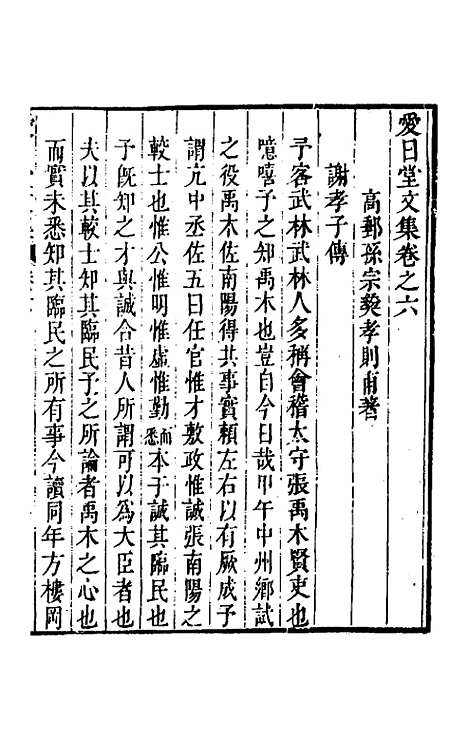 愛日堂文集卷之六
高郵孫宗彝孝則甫著
謝孝子傳
予客武林武林人多稱會稽太守張禹木賢吏也
噫嘻予之知禹木也豈自今日哉甲午中州鄉試
之役禹木佐南陽得共事實賴左右以有厥成予
謂亢中丞佐五日任官惟才敷政惟誠張南陽之
較士也惟公惟明惟虛惟勤而悉本于誠其臨民也
予旣知之才與誠合昔人所謂可以為大臣者也
夫以其較士知其臨民予之所論者禹木之心也
而實未悉知其臨民之所有事今讀同年方樓岡